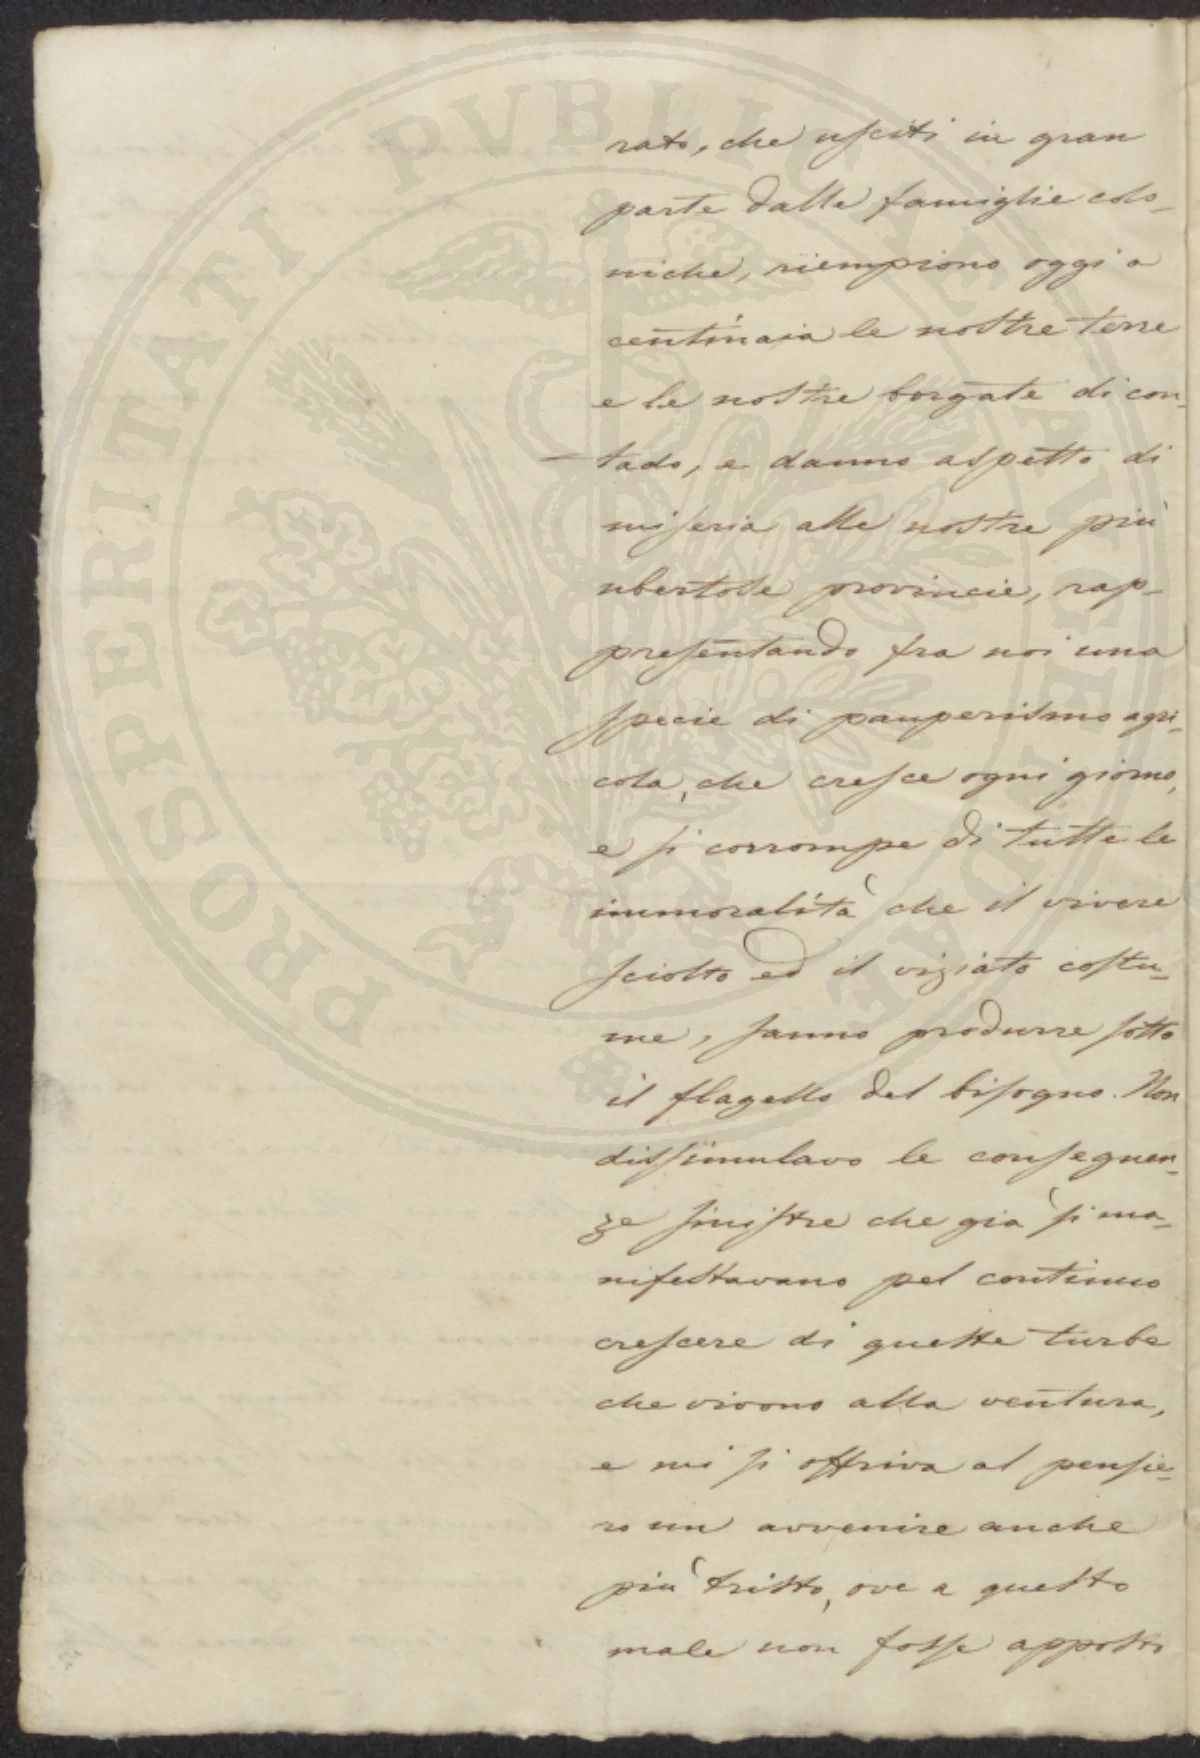 PROSPERITATI PVBLICAE AVGENDAE
rato, che usciti in gran
parte dalle famiglie colo-
niche, riempiono oggi a
centinaia le nostre terre
e le nostre borgate di con-
tado, e danno aspetto di
miseria alle nostre più
ubertose provincie, rap-
presentando fra noi una
specie di pauperismo agri-
cola, che cresce ogni giorno,
e si corrompe di tutte le
immoralità che il vivere
sciolto ed il viziato costu-
me, sanno produrre sotto
il flagello del bisogno. Non
dissimulavo le conseguen-
ze sinistre che già si ma-
nifestavano pel continuo
crescere di queste turbe
che vivono alla ventura,
e mi si offriva al pensie-
ro un avvenire anche
più tristo, ove a questo
male non fosse apposto